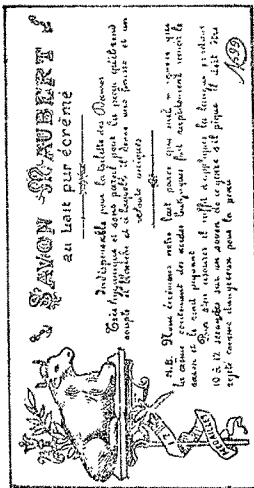 SAVON MAUBERT
au Lait pur écrémé
Indispensable pour la toilette des Dames
Très hygiénique et sans pareil pour la peau qu'il rend
souple et blanche et à laquelle il donne une finesse et un
velouté uniques
N.B. Nous écrémons notre lait parce que
la crème contenant des acides butyriques fait rapidement rancir le
savon et le rend piquant
Pour s'en assurer il suffit d'appliquer la langue pendant
10 à 12 secondes sur un savon de ce genre s'il pique il doit être
rejeté comme dangereux pour la peau
1699